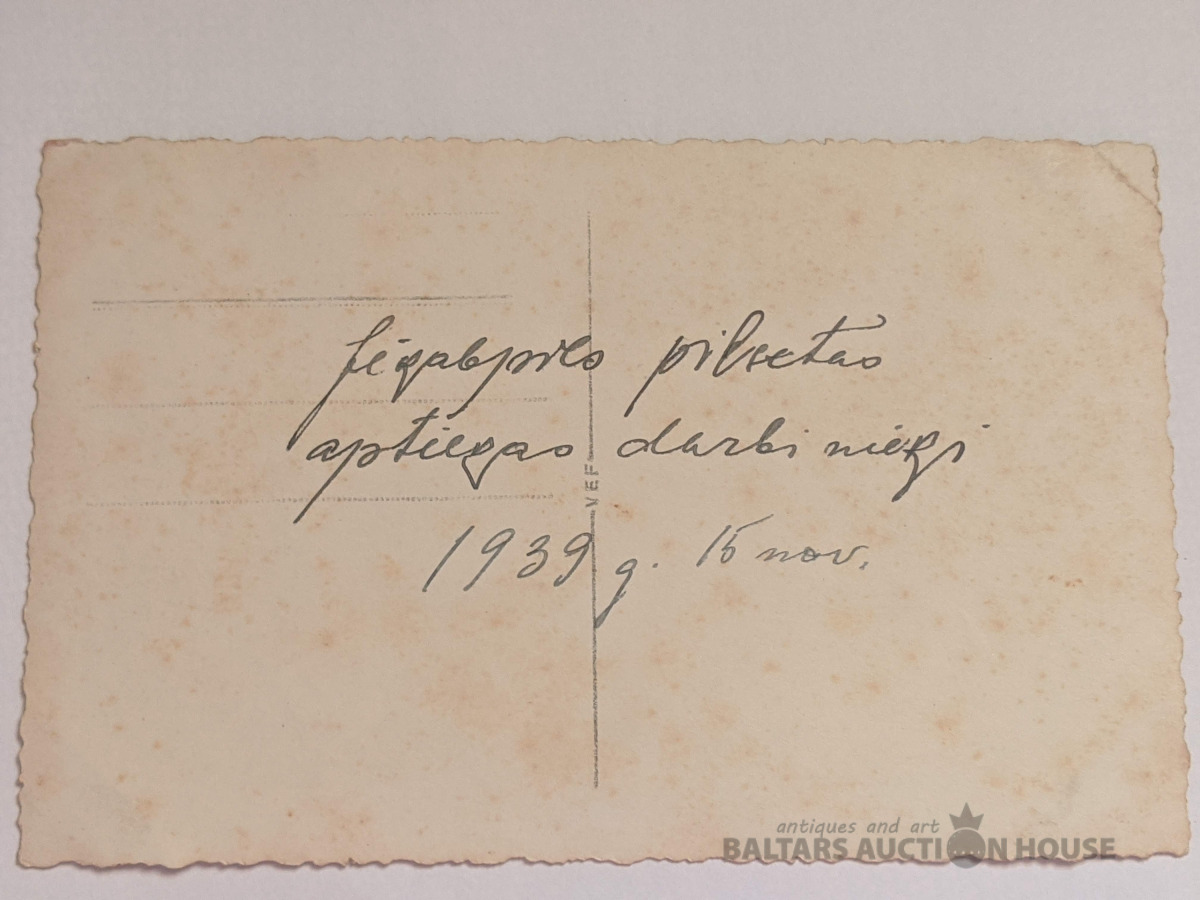 Jēgabpils pilsētas
aptiēgas darbiniēķi
1939 g. 15 nov.
VEF
antiques and art
BALTARS AUCTION HOUSE